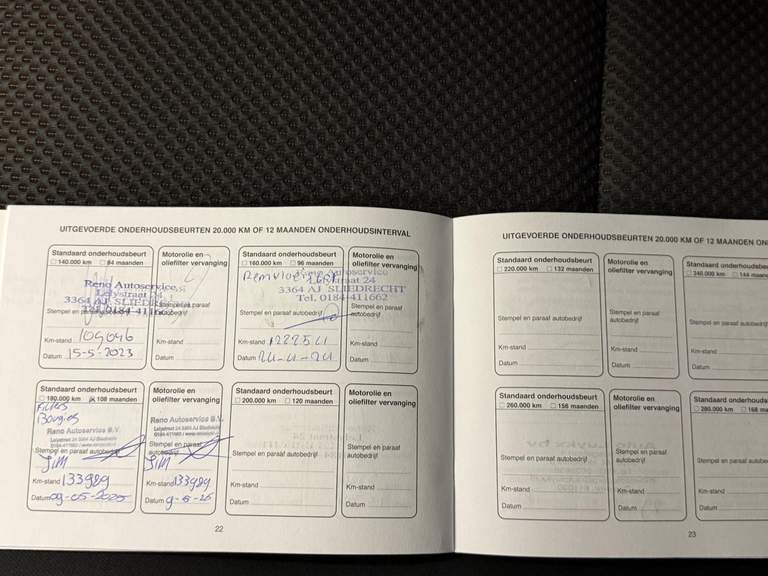 UITGEVOERDE ONDERHOUDSBEURTEN 20.000 KM OF 12 MAANDEN ONDERHOUDSINTERVAL
Standaard onderhoudsbeurt
140.000 km 84 maanden
Reno Autoservice
Lelystraat 24
3364 AJ SLIEDRECHT
Tel. 0184-411662
Stempel en paraaf
Km-stand 109046
Datum 15-5-2023
Motorolie en
oliefilter vervanging
Stempel en paraaf
Km-stand
Datum
Standaard onderhoudsbeurt
160.000 km 96 maanden
Remvloeistof
Reno Autoservice
Lelystraat 24
3364 AJ SLIEDRECHT
Tel. 0184-411662
Stempel en paraaf autobedrijf
Km-stand 122254
Datum 24-4-24
Motorolie en
oliefilter vervanging
Stempel en paraaf
autobedrijf
Km-stand
Datum
Standaard onderhoudsbeurt
180.000 km x 108 maanden
Filters
Bougies
Reno Autoservice B.V.
Lelystraat 24 3364 AJ Sliedrecht
Stempel en paraaf autobedrijf
Km-stand 133989
Datum 09-05-2025
Motorolie en
oliefilter vervanging
Reno Autoservice B.V.
Lelystraat 24 3364 AJ Sliedrecht
Stempel en paraaf
autobedrijf
Km-stand 133989
Datum 9-5-25
Standaard onderhoudsbeurt
200.000 km 120 maanden
Stempel en paraaf autobedrijf
Km-stand
Datum
Motorolie en
oliefilter vervanging
Stempel en paraaf
autobedrijf
Km-stand
Datum
22
UITGEVOERDE ONDERHOUDSBEURTEN 20.000 KM OF 12 MAANDEN
Standaard onderhoudsbeurt
220.000 km 132 maanden
Stempel en paraaf autobedrijf
Km-stand
Datum
Motorolie en
oliefilter vervanging
Stempel en paraaf
autobedrijf
Km-stand
Datum
Standaard onderhoudsbeurt
240.000 km 144
Stempel en paraaf autobedrijf
Km-stand
Datum
Standaard onderhoudsbeurt
260.000 km 156 maanden
Stempel en paraaf autobedrijf
Km-stand
Datum
Motorolie en
oliefilter vervanging
Stempel en paraaf
autobedrijf
Km-stand
Datum
Standaard onderhoudsbeurt
280.000 km 168
Stempel en paraaf autobedrijf
Km-stand
Datum
23